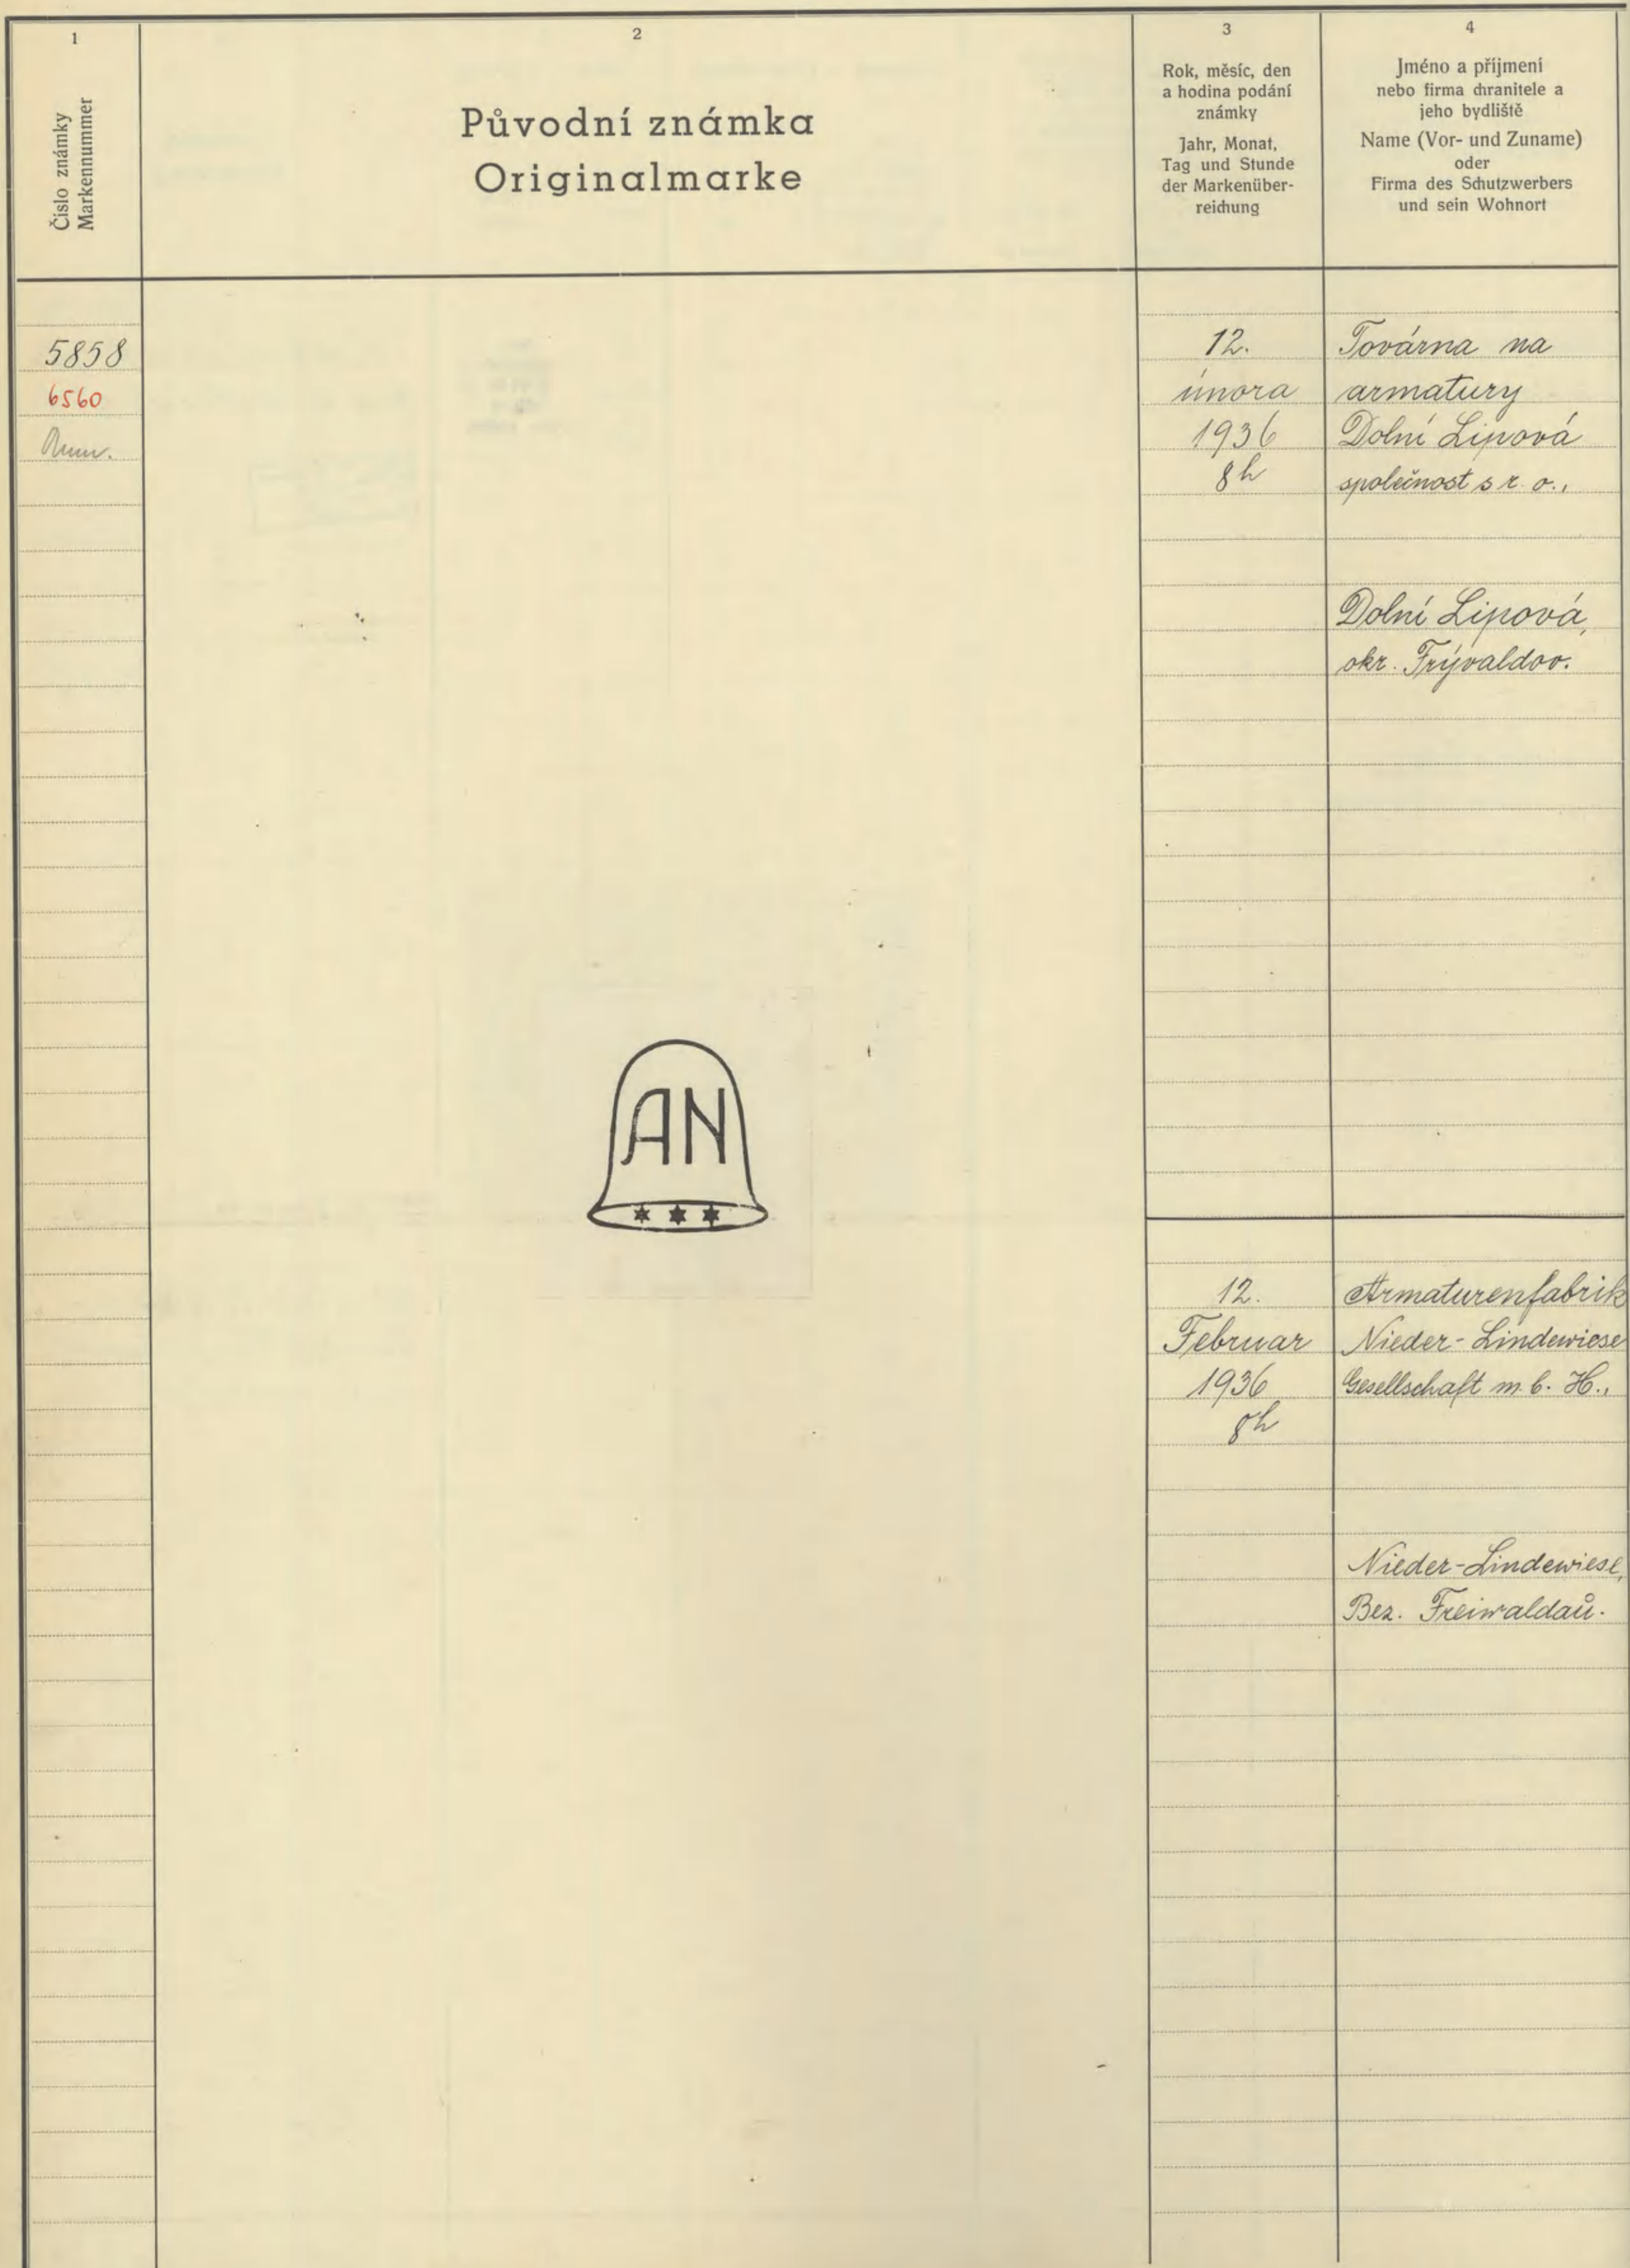 1
Číslo známky
Markennummer
2
Původní známka
Originalmarke
3
Rok, měsíc, den
a hodina podání
známky
Jahr, Monat,
Tag und Stunde
der Markenüber-
reichung
4
Jméno a příjmení
nebo firma chranitele a
jeho bydliště
Name (Vor- und Zuname)
oder
Firma des Schutzwerbers
und sein Wohnort
5858
6560
12.
února
1936
8h
Továrna na
armatury
Dolní Lipová
společnost s r. o.,
Dolní Lipová,
okr. Frývaldov.
AN
12.
Februar
1936
8h
Armaturenfabrik
Nieder-Lindewiese
Gesellschaft m. b. H.,
Nieder-Lindewiese,
Bez. Freiwaldau.